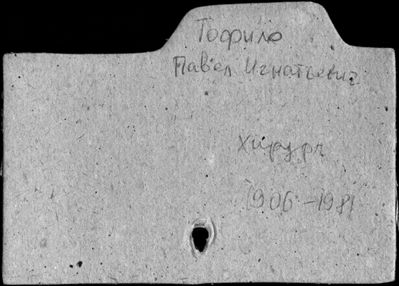 Тофило
Павел Игнатьевич
хирург
1906-1981